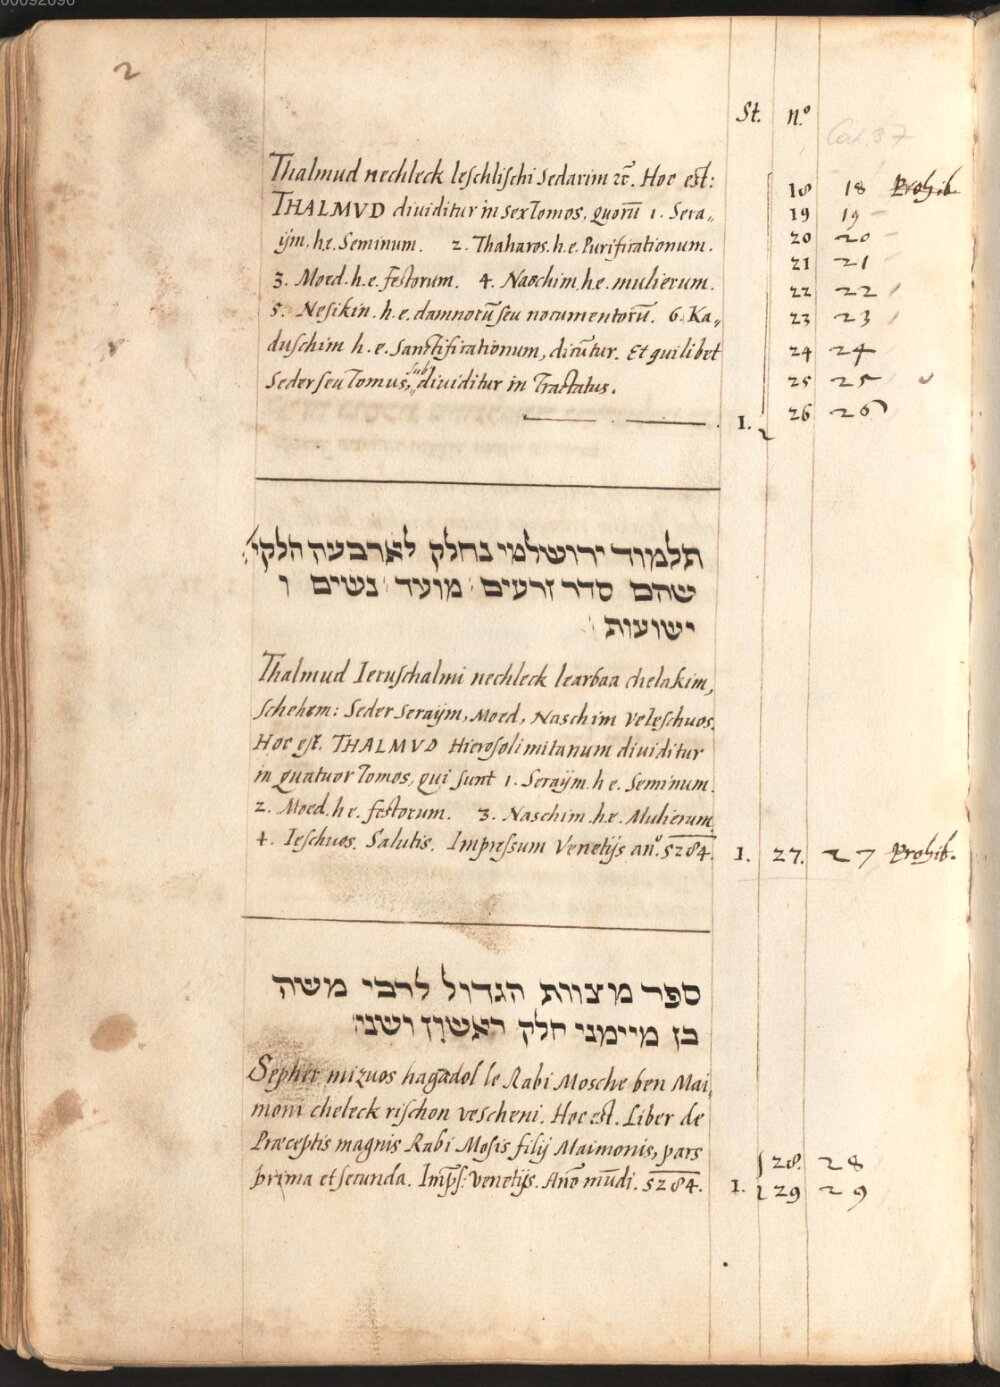 00092096
2
St. N.º
Cat. 37
Thalmud nechleck leschlischi sedarim ꝛc̃. Hoc est:
THALMVD diuiditur in sex Tomos, quorũ 1. Sera„
ijm, h.e. Seminum. 2. Thaharos. h.e. Purificationum.
3. Moed. h.e. festorum. 4. Naschim. h.e. mulierum.
5. Nesikin. h.e. damnorũ seu nocumentorũ. 6. Ka„
duschim h.e. Sanctificationum, dicũtur. Et quilibet
Seder seu Tomus, sub diuiditur in Tractatus.
1.
18 18 Prohib.
19 19
20 20
21 21
22 22
23 23
24 24
25 25
26 26
תלמוד ירושלמי נחלק לארבעה חלקי׳
שהם סדר זרעים מועד נשים ו
ישועות
Thalmud Ieruschalmi nechleck learbaa chelakim,
schehem: Seder Seraijm, Moed, Naschim Veleschuos.
Hoc est. THALMVD Hierosolimitanum diuiditur
in quatuor Tomos, qui sunt 1. Seraijm h.e. Seminum.
2. Moed. h.e. festorum. 3. Naschim. h.e. Mulierum
4. Ieschuos. Salutis. Impressum Venetijs anº. 5284. 1. 27. 27 Prohib.
ספר מצוות הגדול לרבי משה
בן מיימני חלק ראשון ושני
Sepher mizuos hagadol le Rabi Mosche ben Mai„
moni cheleck rischon vescheni. Hoc est. Liber de
Præceptis magnis Rabi Mosis filij Maimonis, pars
prima et secunda. Imp̃s: Venetijs. Anõ mũdi. 5284. 1.
28. 28
29 29